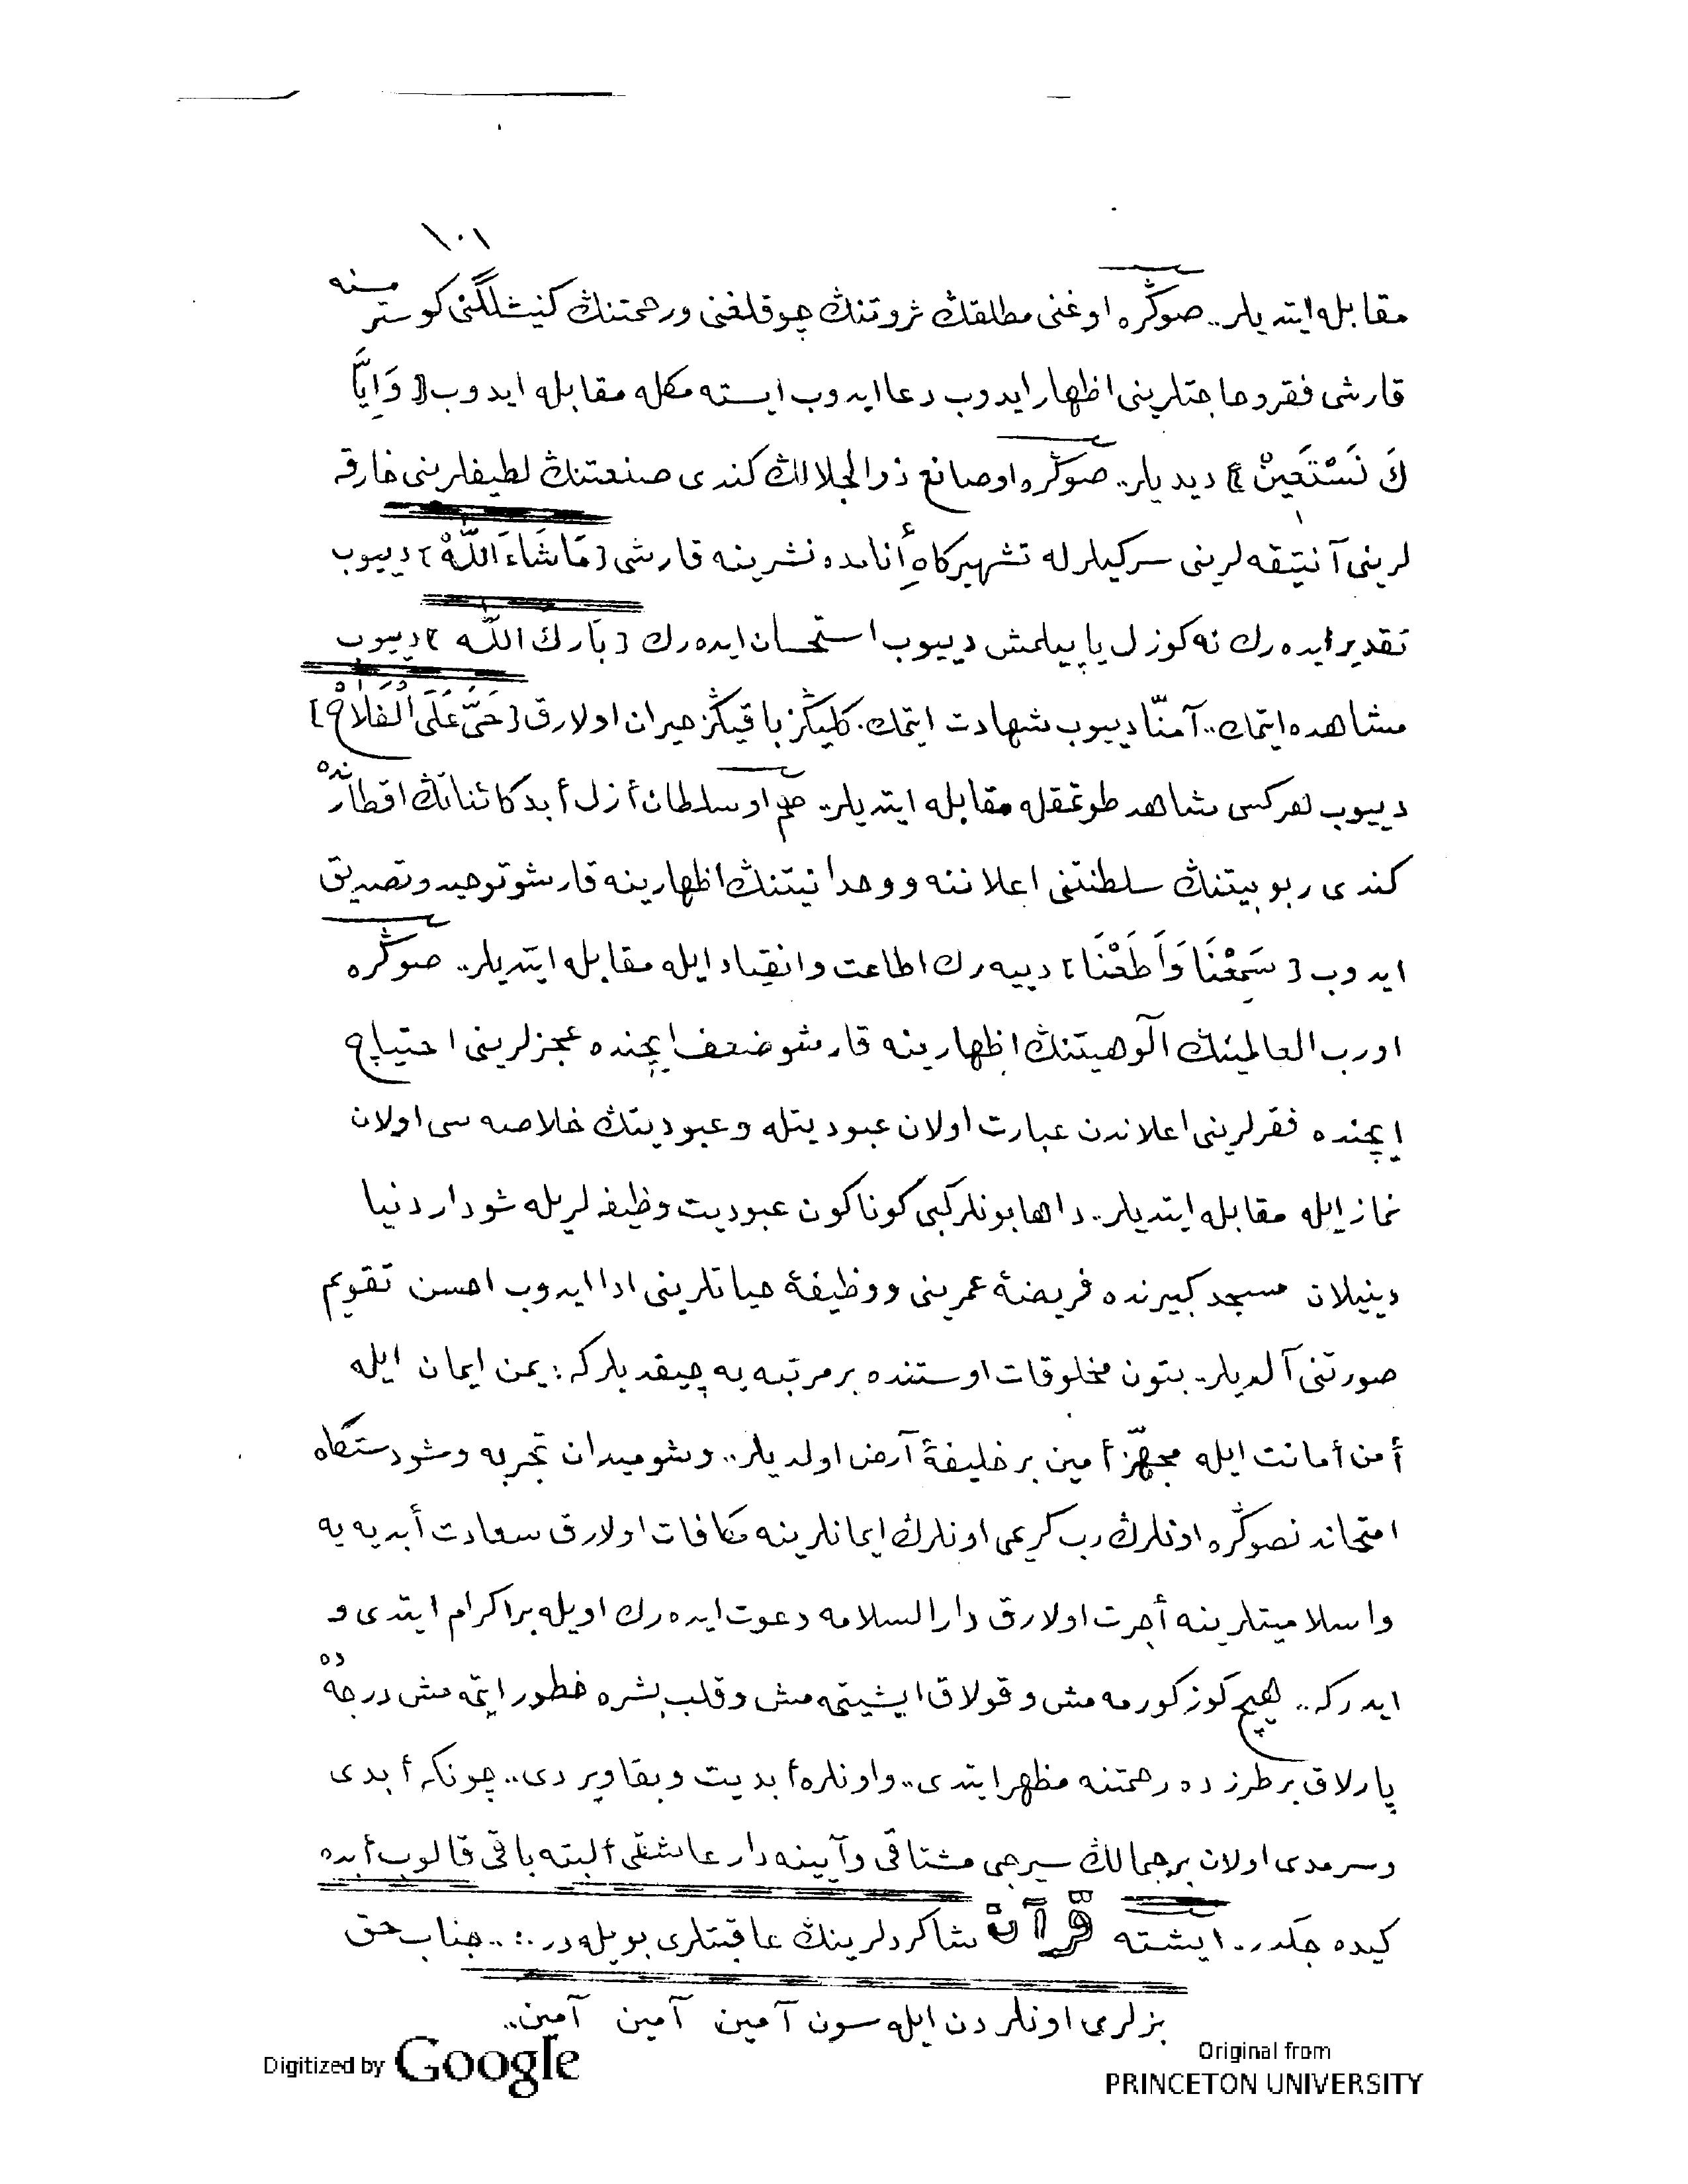 ١٠١
مقابله ايتديلر.. صوڭره او غنى مطلقڭ ثروتنڭ چوقلغنى ورحمتنڭ كنيشلگنى كوسترمسنه
قارشى فقر وحاجتلرينى اظهار ايدوب دعا ايدوب ايسته مكله مقابله ايدوب [ وَاِيَّا
كَ نَسْتَعِينْ ] ديديلر.. صوڭره او صانع ذوالجلالڭ كندى صنعتنڭ لطيفلرينى خارقه
لرينى آنتيقه لرينى سركيلرله تشهيركاهِ أنامده نشرينه قارشى [ مَاشَاءَ اللّٰهْ ] دييوب
تقدير ايده رك نه كوزل ياپيلمش دييوب استحسان ايده رك [ بَارَكَ اللّٰه ] دييوب
مشاهده ايتمك.. آمنّا دييوب شهادت ايتمك. كليڭز باقيڭز حيران اولارق [ حَىَّ عَلَى الْفَلَاحْ ]
دييوب هركسى شاهد طوتمقله مقابله ايتديلر.. هم او سلطان أزل أبد كائناتڭ اقطارنده
كندى ربوبيتنڭ سلطنتنى اعلاننه ووحدانيتنڭ اظهارينه قارشو توحيد وتصديق
ايدوب [ سَمِعْنَا وَاَطَعْنَا ] دييه رك اطاعت وانقياد ايله مقابله ايتديلر.. صوڭره
او رب العالمينڭ آلوهيتنڭ اظهارينه قارشو ضعف ايچنده عجزلرينى احتياج
ايچنده فقرلرينى اعلاندن عبارت اولان عبوديتله وعبوديتڭ خلاصه سى اولان
نماز ايله مقابله ايتديلر.. داها بونلر كبى كوناكون عبوديت وظيفه لريله شو دار دنيا
دينيلان مسجد كبيرنده فريضۀ عمرينى ووظيفۀ حياتلرينى ادا ايدوب احسن تقويم
صورتنى آلديلر.. بتون مخلوقات اوستنده بر مرتبه يه چيقديلر كه : يمن ايمان ايله
أمن أمانت ايله مجهّز أمين بر خليفۀ آرض اولديلر.. وشو ميدان تجربه وشو دستكاه
امتحاندنصوڭره اونلرڭ رب كريمى اونلرڭ ايمانلرينه مكافات اولارق سعادت أبديه يه
واسلاميتلرينه أجرت اولارق دارالسلامه دعوت ايده رك اويله بر اكرام ايتدى و
ايدر كه.. هيچ كوز كورمه مش وقولاق ايشيتمه مش وقلب بشره خطور ايتمه مش درجه ده
پارلاق بر طرزده رحمتنه مظهر ايتدى.. واونلره أبديت وبقا ويردى.. چونكه أبدى
وسرمدى اولان بر جمالڭ سيرجى مشتاقى وآيينه دار عاشقى ألبته باقى قالوب أبده
كيده جكدر.. ايشته قرآن شاكردلرينڭ عاقبتلرى بويله در .:.. جناب حق
بزلرى اونلردن ايله سون آمين آمين آمين..
Digitized by Google
Original from
PRINCETON UNIVERSITY